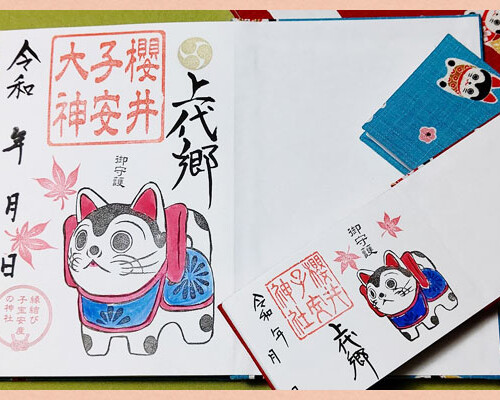 上代郷
櫻井
子安
大神
御守護
令和 年 月 日
縁結び
子宝安産
の神社
御守護
櫻井
子安
神社
上代郷
令和 年 月 日